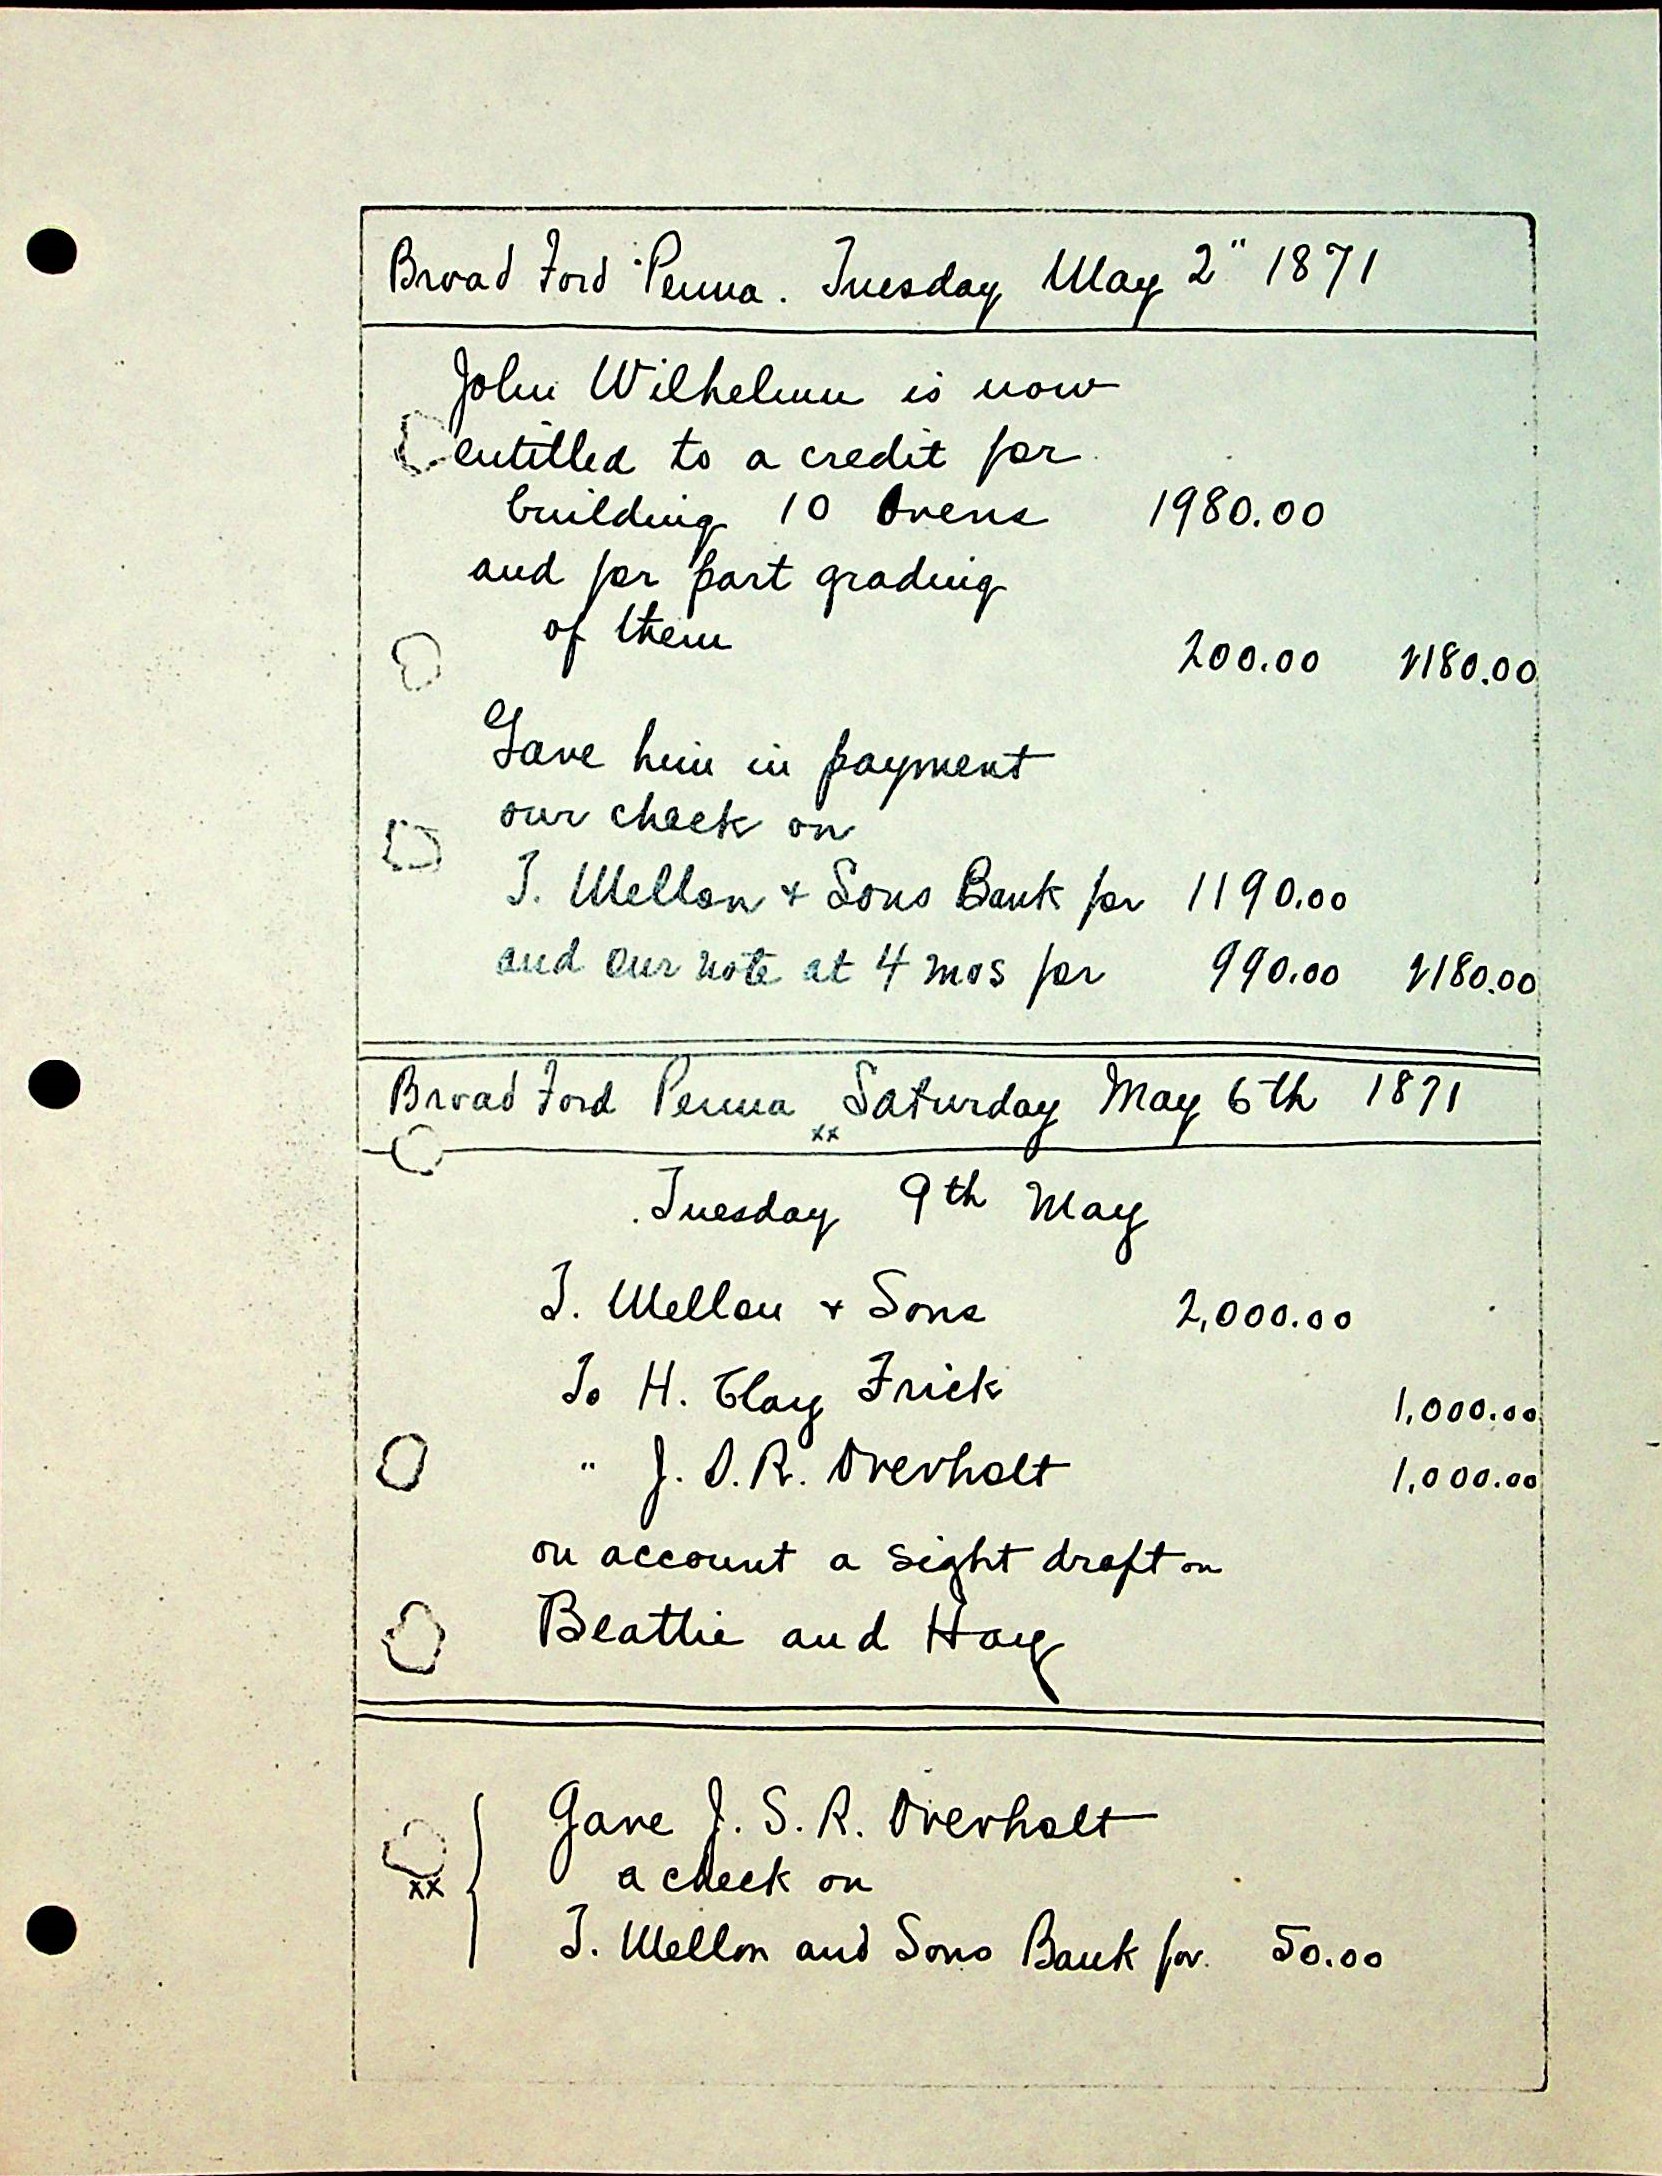 Broad Ford Penna. Tuesday May 2" 1871
John Wilhelm is now
entitled to a credit for
building 10 Ovens 1980.00
and for part grading
of them 200.00 2180.00
Gave him in payment
our check on
T. Mellon + Sons Bank for 1190.00
and our note at 4 mos for 990.00 2180.00
Broad Ford Penna xx Saturday May 6th 1871
Tuesday 9th May
T. Mellon + Sons 2,000.00
To H. Clay Frick 1,000.00
" J. S. R. Overholt 1,000.00
on account a sight draft on
Beattie and Hay
Gave J. S. R. Overholt
xx a check on
T. Mellon and Sons Bank for. 50.00